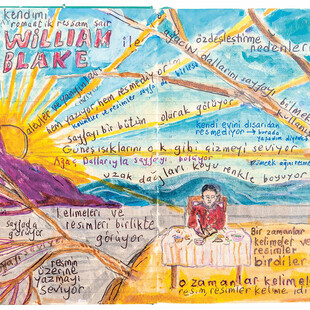 kendimi
romantik ressam şair
WILLIAM
BLAKE
ile
özdeşleştirme
nedenleri
ağacın dallarını sayfayı
bilmek
kullanı
hem yazıyor hem resmediyor
sayfayı bir bütün olarak görüyor
kendi evini dışarıdan
resmediyor → burada
yaşadım diyor
Güneş ışıklarını ok gibi çizmeyi seviyor
Ağaç Dallarıyla sayfayı bölüyor
uzak dağları koyu renkle boyuyor
kelimeleri ve
resimleri birlikte
görüyor
sayfada
görüyor
resmin
üzerine
yazmayı
seviyor
Bir zamanlar
kelimeler ve
resimler
birdiler
o zamanlar kelimele
resim resimler kelime idi